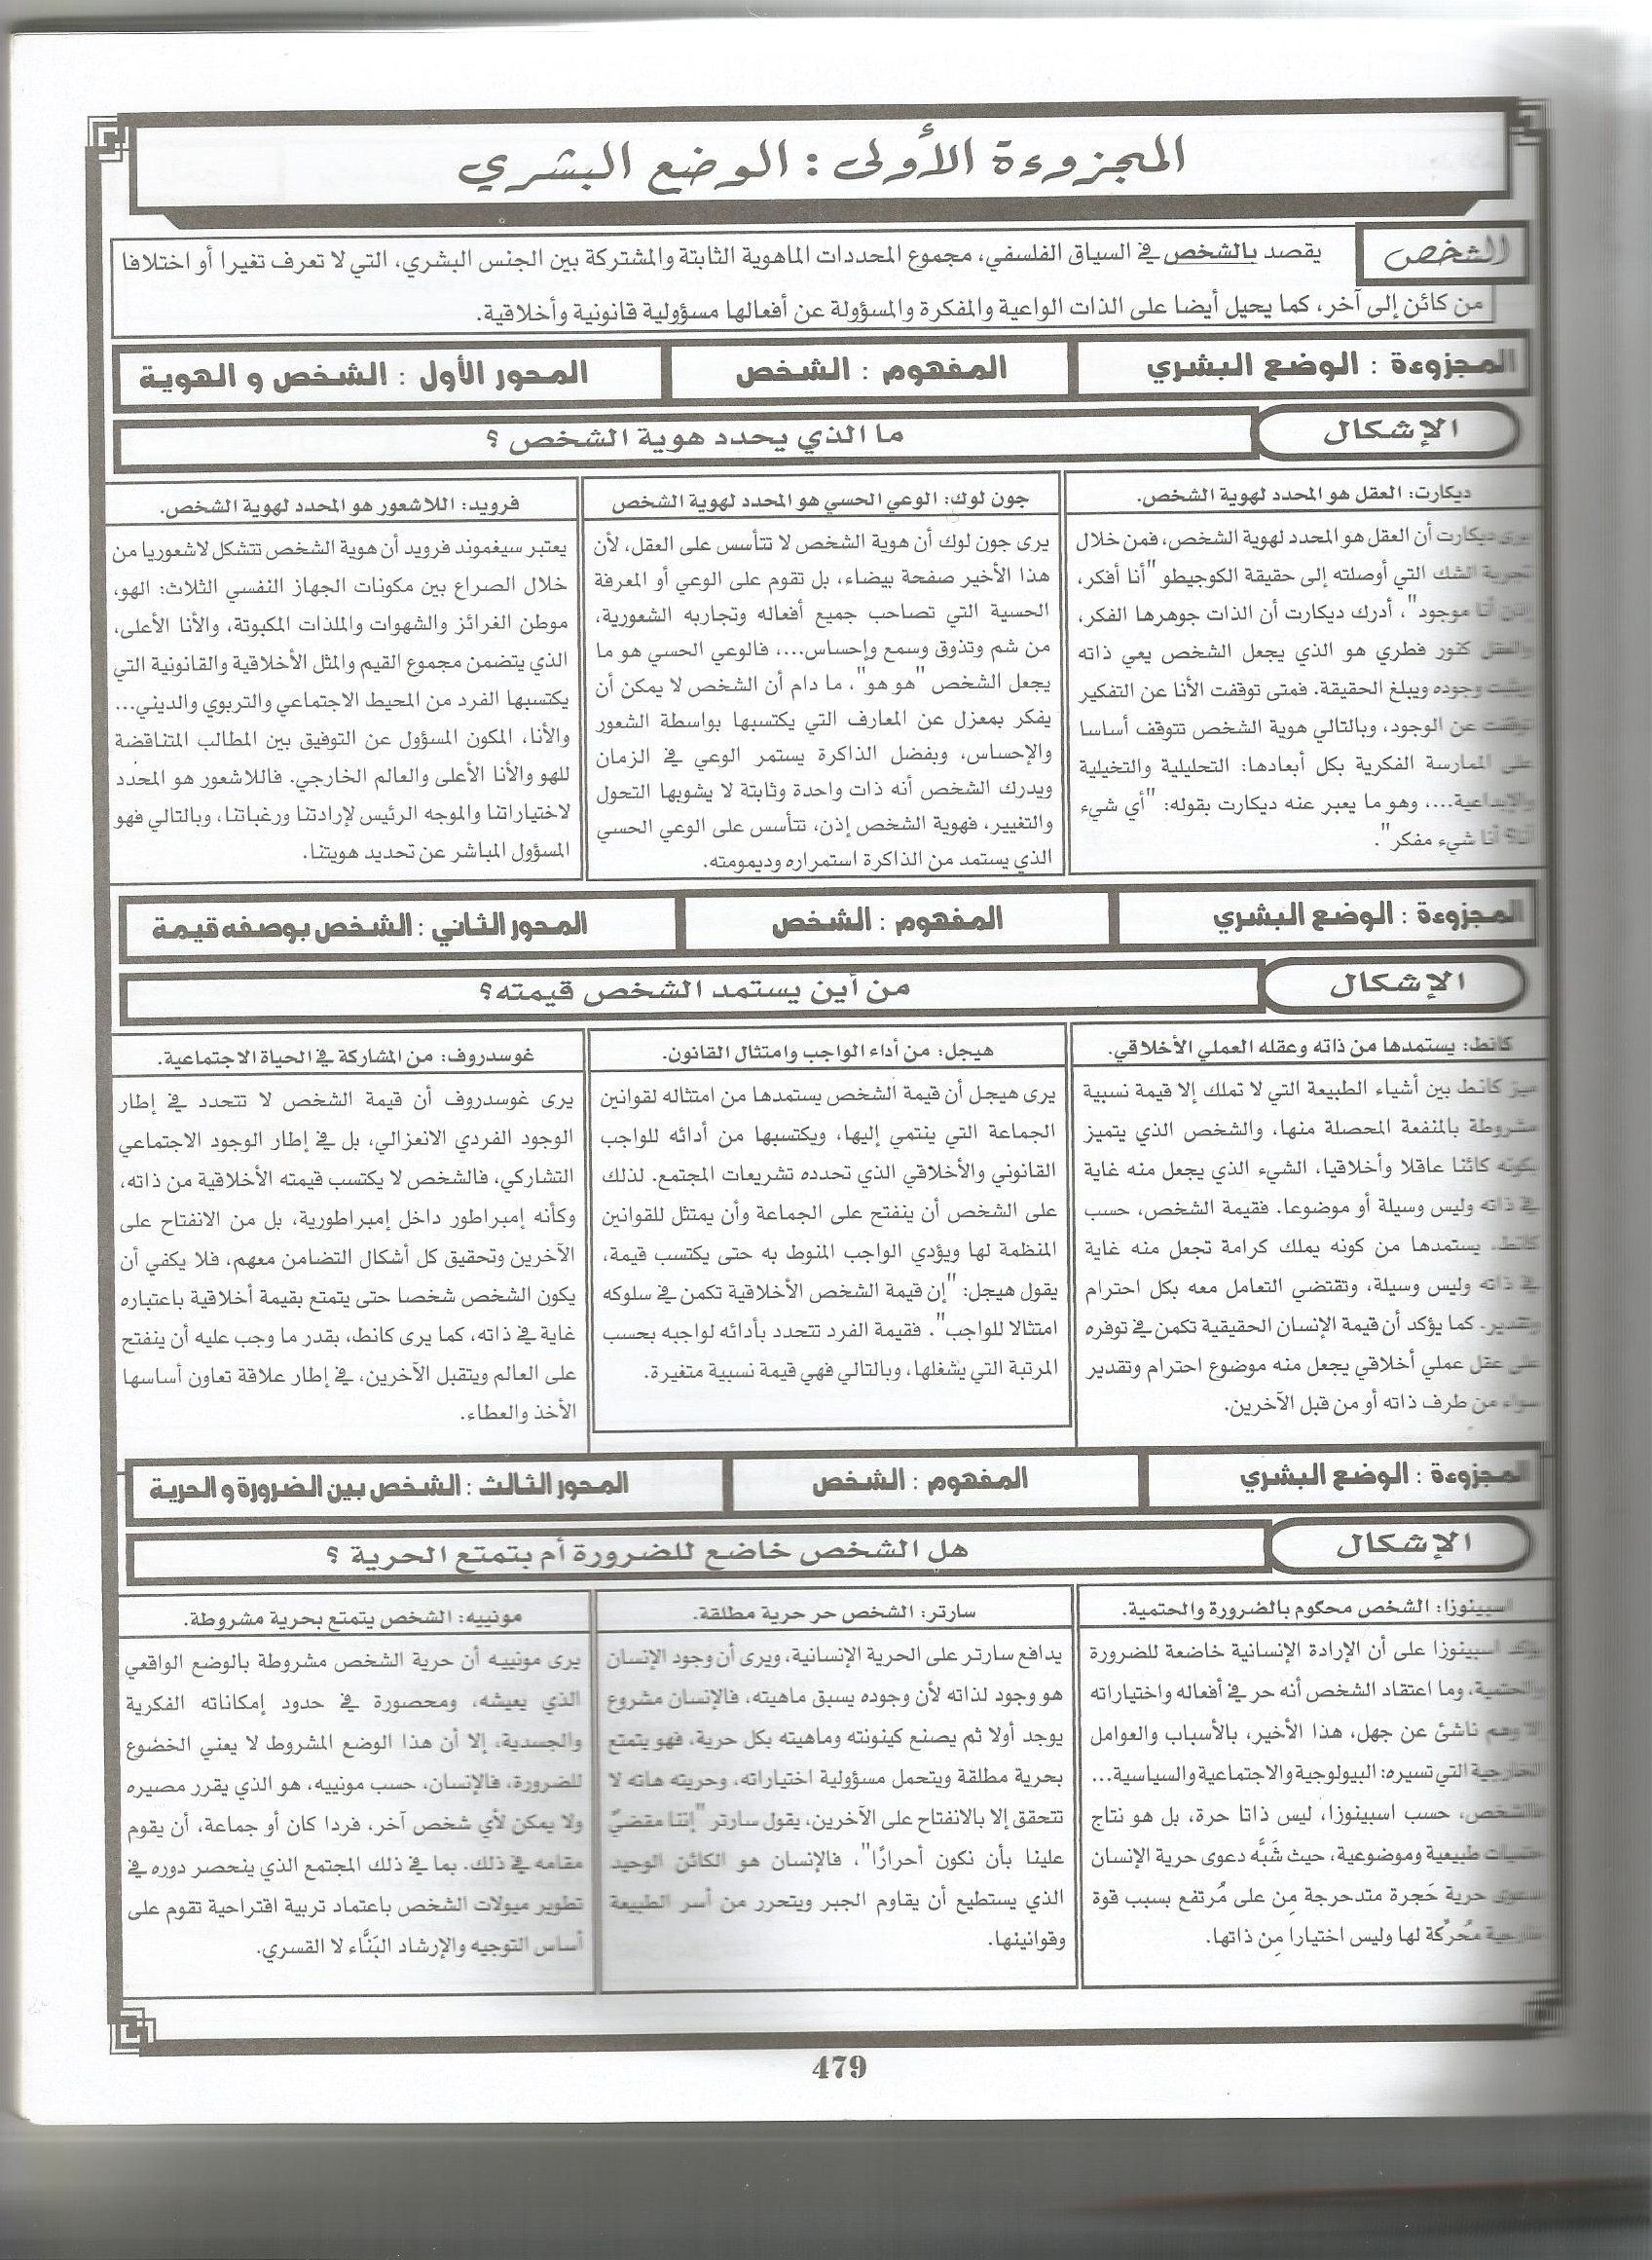 المجزوءة الأولى : الوضع البشري
الشخص
يقصد بالشخص في السياق الفلسفي، مجموع المحددات الماهوية الثابتة والمشتركة بين الجنس البشري، التي لا تعرف تغيرا أو اختلافا
من كائن إلى آخر، كما يحيل أيضا على الذات الواعية والمفكرة والمسؤولة عن أفعالها مسؤولية قانونية وأخلاقية.
المجزوءة : الوضع البشري
المفهوم : الشخص
المحور الأول : الشخص و الهوية
الإشكال
ما الذي يحدد هوية الشخص ؟
ديكارت: العقل هو المحدد لهوية الشخص.
يرى ديكارت أن العقل هو المحدد لهوية الشخص، فمن خلال
تجربة الشك التي أوصلته إلى حقيقة الكوجيطو "أنا أفكر،
إذن أنا موجود"، أدرك ديكارت أن الذات جوهرها الفكر،
والعقل كنور فطري هو الذي يجعل الشخص يعي ذاته
ويثبت وجوده ويبلغ الحقيقة. فمتى توقفت الأنا عن التفكير
توقفت عن الوجود، وبالتالي هوية الشخص تتوقف أساسا
على الممارسة الفكرية بكل أبعادها: التحليلية والتخيلية
والإبداعية...، وهو ما يعبر عنه ديكارت بقوله: "أي شيء
أنا؟ أنا شيء مفكر".
جون لوك: الوعي الحسي هو المحدد لهوية الشخص
يرى جون لوك أن هوية الشخص لا تتأسس على العقل، لأن
هذا الأخير صفحة بيضاء، بل تقوم على الوعي أو المعرفة
الحسية التي تصاحب جميع أفعاله وتجاربه الشعورية،
من شم وتذوق وسمع وإحساس...، فالوعي الحسي هو ما
يجعل الشخص "هو هو"، ما دام أن الشخص لا يمكن أن
يفكر بمعزل عن المعارف التي يكتسبها بواسطة الشعور
والإحساس، وبفضل الذاكرة يستمر الوعي في الزمان
ويدرك الشخص أنه ذات واحدة وثابتة لا يشوبها التحول
والتغيير، فهوية الشخص إذن، تتأسس على الوعي الحسي
الذي يستمد من الذاكرة استمراره وديمومته.
فرويد: اللاشعور هو المحدد لهوية الشخص.
يعتبر سيغموند فرويد أن هوية الشخص تتشكل لاشعوريا من
خلال الصراع بين مكونات الجهاز النفسي الثلاث: الهو،
موطن الغرائز والشهوات والملذات المكبوتة، والأنا الأعلى،
الذي يتضمن مجموع القيم والمثل الأخلاقية والقانونية التي
يكتسبها الفرد من المحيط الاجتماعي والتربوي والديني...
والأنا، المكون المسؤول عن التوفيق بين المطالب المتناقضة
للهو والأنا الأعلى والعالم الخارجي. فاللاشعور هو المحدد
لاختياراتنا والموجه الرئيس لإرادتنا ورغباتنا، وبالتالي فهو
المسؤول المباشر عن تحديد هويتنا.
المجزوءة : الوضع البشري
المفهوم : الشخص
المحور الثاني : الشخص بوصفه قيمة
الإشكال
من أين يستمد الشخص قيمته؟
كانط: يستمدها من ذاته وعقله العملي الأخلاقي.
ميز كانط بين أشياء الطبيعة التي لا تملك إلا قيمة نسبية
مشروطة بالمنفعة المحصلة منها، والشخص الذي يتميز
بكونه كائنا عاقلا وأخلاقيا، الشيء الذي يجعل منه غاية
في ذاته وليس وسيلة أو موضوعا. فقيمة الشخص، حسب
كانط، يستمدها من كونه يملك كرامة تجعل منه غاية
في ذاته وليس وسيلة، وتقتضي التعامل معه بكل احترام
وتقدير. كما يؤكد أن قيمة الإنسان الحقيقية تكمن في توفره
على عقل عملي أخلاقي يجعل منه موضوع احترام وتقدير
سواء من طرف ذاته أو من قبل الآخرين.
هيجل: من أداء الواجب وامتثال القانون.
يرى هيجل أن قيمة الشخص يستمدها من امتثاله لقوانين
الجماعة التي ينتمي إليها، ويكتسبها من أدائه للواجب
القانوني والأخلاقي الذي تحدده تشريعات المجتمع. لذلك
على الشخص أن ينفتح على الجماعة وأن يمتثل للقوانين
المنظمة لها ويؤدي الواجب المنوط به حتى يكتسب قيمة،
يقول هيجل: "إن قيمة الشخص الأخلاقية تكمن في سلوكه
امتثالا للواجب". فقيمة الفرد تتحدد بأدائه لواجبه بحسب
المرتبة التي يشغلها، وبالتالي فهي قيمة نسبية متغيرة.
غوسدروف: من المشاركة في الحياة الاجتماعية.
يرى غوسدروف أن قيمة الشخص لا تتحدد في إطار
الوجود الفردي الانعزالي، بل في إطار الوجود الاجتماعي
التشاركي، فالشخص لا يكتسب قيمته الأخلاقية من ذاته،
وكأنه إمبراطور داخل إمبراطورية، بل من الانفتاح على
الآخرين وتحقيق كل أشكال التضامن معهم، فلا يكفي أن
يكون الشخص شخصا حتى يتمتع بقيمة أخلاقية باعتباره
غاية في ذاته، كما يرى كانط، بقدر ما وجب عليه أن ينفتح
على العالم ويتقبل الآخرين، في إطار علاقة تعاون أساسها
الأخذ والعطاء.
المجزوءة : الوضع البشري
المفهوم : الشخص
المحور الثالث : الشخص بين الضرورة و الحرية
الإشكال
هل الشخص خاضع للضرورة أم يتمتع الحرية ؟
اسبينوزا: الشخص محكوم بالضرورة والحتمية.
يؤكد اسبينوزا على أن الإرادة الإنسانية خاضعة للضرورة
والحتمية، وما اعتقاد الشخص أنه حر في أفعاله واختياراته
إلا وهم ناشئ عن جهل، هذا الأخير، بالأسباب والعوامل
الخارجية التي تسيره: البيولوجية والاجتماعية والسياسية...
فالشخص، حسب اسبينوزا، ليس ذاتا حرة، بل هو نتاج
حتميات طبيعية وموضوعية، حيث شَبَّه دعوى حرية الإنسان
بدعوى حرية حَجرة متدحرجة مِن على مُرتفع بسبب قوة
خارجية مُحرِّكة لها وليس اختيارا مِن ذاتها.
سارتر: الشخص حر حرية مطلقة.
يدافع سارتر على الحرية الإنسانية، ويرى أن وجود الإنسان
هو وجود لذاته لأن وجوده يسبق ماهيته، فالإنسان مشروع
يوجد أولا ثم يصنع كينونته وماهيته بكل حرية، فهو يتمتع
بحرية مطلقة ويتحمل مسؤولية اختياراته، وحريته هاته لا
تتحقق إلا بالانفتاح على الآخرين، يقول سارتر "إننا مقضيٌ
علينا بأن نكون أحرارًا"، فالإنسان هو الكائن الوحيد
الذي يستطيع أن يقاوم الجبر ويتحرر من أسر الطبيعة
وقوانينها.
مونييه: الشخص يتمتع بحرية مشروطة.
يرى مونييه أن حرية الشخص مشروطة بالوضع الواقعي
الذي يعيشه، ومحصورة في حدود إمكاناته الفكرية
والجسدية، إلا أن هذا الوضع المشروط لا يعني الخضوع
للضرورة، فالإنسان، حسب مونييه، هو الذي يقرر مصيره
ولا يمكن لأي شخص آخر، فردا كان أو جماعة، أن يقوم
مقامه في ذلك. بما في ذلك المجتمع الذي ينحصر دوره في
تطوير ميولات الشخص باعتماد تربية اقتراحية تقوم على
أساس التوجيه والإرشاد البَنَّاء لا القسري.
479